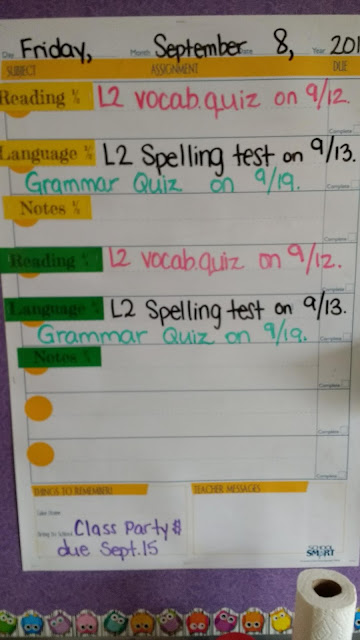 Day Friday, Month September Date 8, Year 201
SUBJECT ASSIGNMENT DUE
Reading L2 vocab.quiz on 9/12.
Complete
Language L2 Spelling test on 9/13.
Grammar Quiz on 9/19.
Complete
Notes
Complete
Reading L2 vocab.quiz on 9/12.
Complete
Language L2 Spelling test on 9/13.
Grammar Quiz on 9/19.
Complete
Notes
Complete
Complete
Complete
THINGS TO REMEMBER! TEACHER MESSAGES
Take Home
Bring to School Class Party $
due Sept.15
SCHOOL SMART